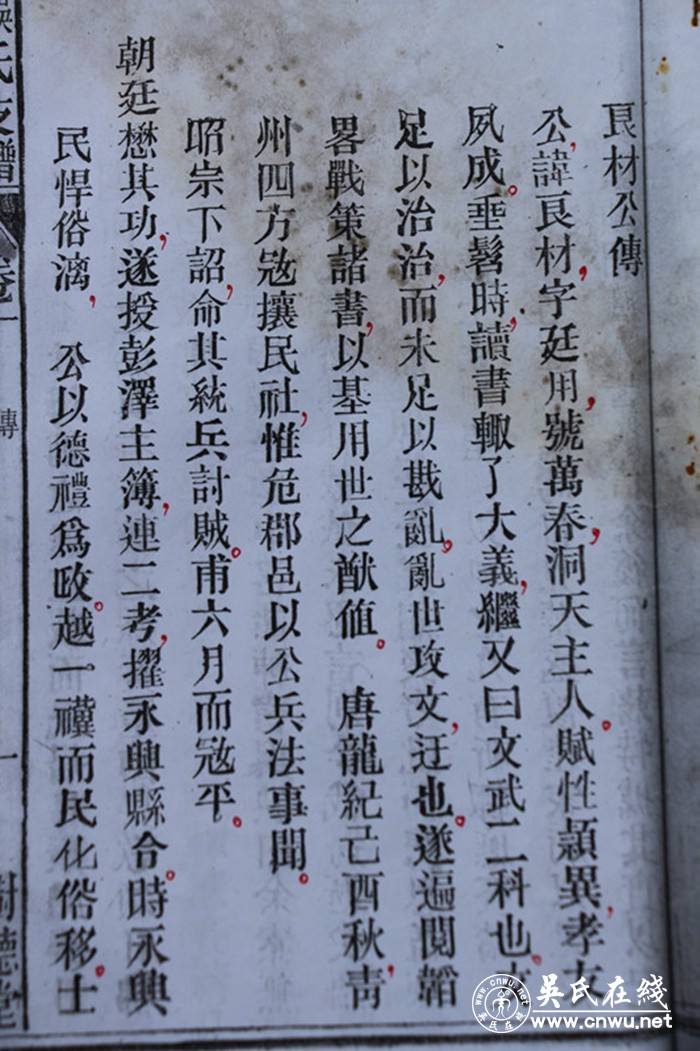 良材公傳
公諱良材,字廷用,號萬春,洞天主人。賦性頴異,孝友
夙成。垂髫時,讀書輙了大義,繼又曰文武二科也。文
足以治治,而未足以戡亂。亂世攻文,迂也。遂遍閱韜
畧戰策諸書,以基用世之猷值。唐龍紀己酉秋,青
州四方宼攘民社,惟危郡邑以公兵法事聞。
昭宗下詔,命其統兵討賊。甫六月而宼平。
朝廷懋其功,遂授彭澤主簿,連二考,擢永興縣令。時永興
民悍俗漓,公以德禮爲政。越一禩而民化俗移。士
吳氏支譜
卷一
傳
一
樹德堂
吳氏在线
www.cnwu.net